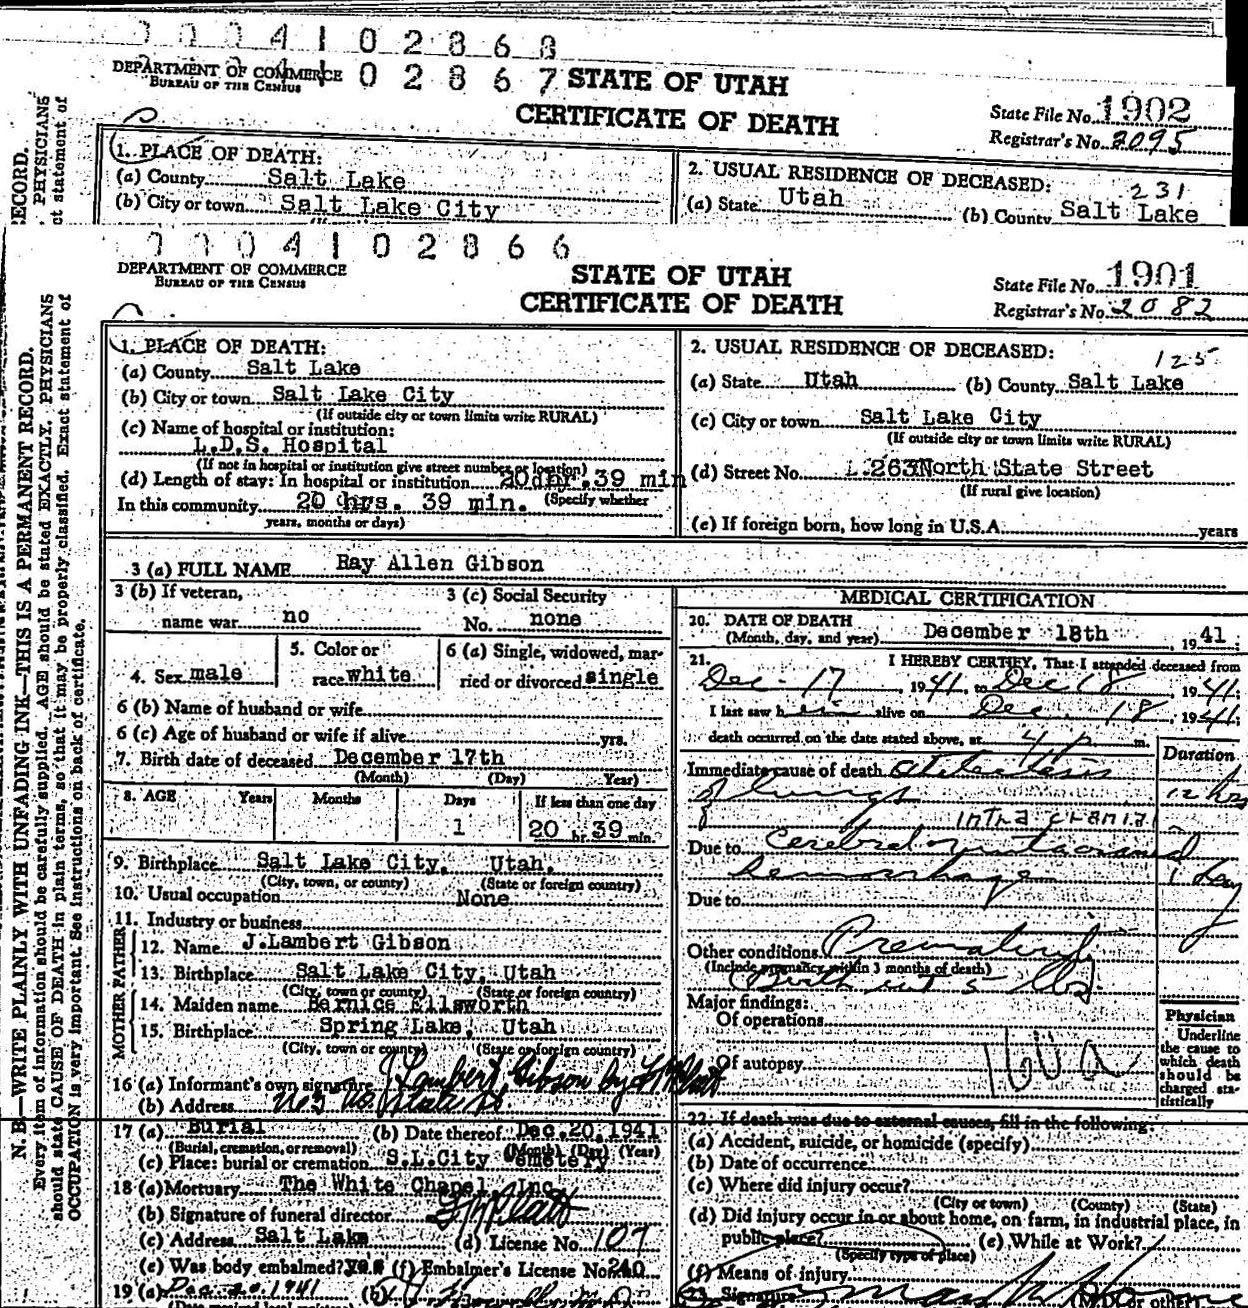 0 0 0 4 1 0 2 8 6 8
DEPARTMENT OF COMMERCE
BUREAU OF THE CENSUS
0 2 8 6 7
STATE OF UTAH
CERTIFICATE OF DEATH
State File No. 1902
Registrar's No. 2095
1. PLACE OF DEATH:
(a) County Salt Lake
(b) City or town Salt Lake City
2. USUAL RESIDENCE OF DECEASED:
231
(a) State Utah (b) County Salt Lake
ECORD.
PHYSICIANS
ct statement of
0 0 0 4 1 0 2 8 6 6
DEPARTMENT OF COMMERCE
BUREAU OF THE CENSUS
STATE OF UTAH
CERTIFICATE OF DEATH
State File No. 1901
Registrar's No. 2082
N. B.—WRITE PLAINLY WITH UNFADING INK—THIS IS A PERMANENT RECORD.
Every item of information should be carefully supplied. AGE should be stated EXACTLY. PHYSICIANS
should state CAUSE OF DEATH in plain terms, so that it may be properly classified. Exact statement of
OCCUPATION is very important. See instructions on back of certificate.
1. PLACE OF DEATH:
(a) County Salt Lake
(b) City or town Salt Lake City
(If outside city or town limits write RURAL)
(c) Name of hospital or institution:
L.D.S. Hospital
(If not in hospital or institution give street number or location)
(d) Length of stay: In hospital or institution 20 hr. 39 min
(Specify whether
In this community 20 hrs. 39 min.
years, months or days)
2. USUAL RESIDENCE OF DECEASED:
125
(a) State Utah (b) County Salt Lake
(c) City or town Salt Lake City
(If outside city or town limits write RURAL)
(d) Street No. 263 North State Street
(If rural give location)
(e) If foreign born, how long in U.S.A. years
3 (a) FULL NAME Ray Allen Gibson
3 (b) If veteran,
name war no
3 (c) Social Security
No. none
4. Sex male
5. Color or
race white
6 (a) Single, widowed, mar-
ried or divorced single
6 (b) Name of husband or wife
6 (c) Age of husband or wife if alive yrs.
7. Birth date of deceased December 17th
(Month) (Day) Year)
8. AGE Years Months Days If less than one day
1 20 hr. 39 min.
9. Birthplace Salt Lake City, Utah,
(City, town, or county) (State or foreign country)
10. Usual occupation None
11. Industry or business
FATHER
12. Name J.Lambert Gibson
13. Birthplace Salt Lake City, Utah
(City, town or county) (State or foreign country)
MOTHER
14. Maiden name Bernice Ellsworth
15. Birthplace Spring Lake, Utah
(City, town or county) (State or foreign country)
16 (a) Informant's own signature J Lambert Gibson by
(b) Address
17 (a) Burial (b) Date thereof Dec.20,1941
(Burial, cremation, or removal) (Month) (Day) (Year)
(c) Place: burial or cremation S.L.City Cemetery
18 (a) Mortuary The White Chapel, Inc.
(b) Signature of funeral director
(c) Address Salt Lake (d) License No. 107
(e) Was body embalmed? yes (f) Embalmer's License No. 240
19 (a) Dec. 20. 1941 (b)
MEDICAL CERTIFICATION
20. DATE OF DEATH
(Month, day, and year) December 18th , 1941;
21. I HEREBY CERTIFY, That I attended deceased from
Dec - 17 , 1941, to Dec 18 , 1941;
I last saw him alive on Dec. 18 , 1941;
death occurred on the date stated above, at 4 p m.
Duration
Immediate cause of death atelectasis
of lungs 12 hrs
intra cranial
Due to Cerebral intracranial
hemorrhage 1 day
Due to
Other conditions Prematurity
(Include pregnancy within 3 months of death)
Birth wt 5 lbs.
Major findings:
Of operations
Of autopsy
160 a
Physician
Underline
the cause to
which death
should be
charged sta-
tistically
22. If death was due to external causes, fill in the following:
(a) Accident, suicide, or homicide (specify)
(b) Date of occurrence
(c) Where did injury occur?
(City or town) (County) (State)
(d) Did injury occur in or about home, on farm, in industrial place, in
public place? (e) While at Work?
(Specify type of place)
(f) Means of injury
23. Signature (M.D. or other)